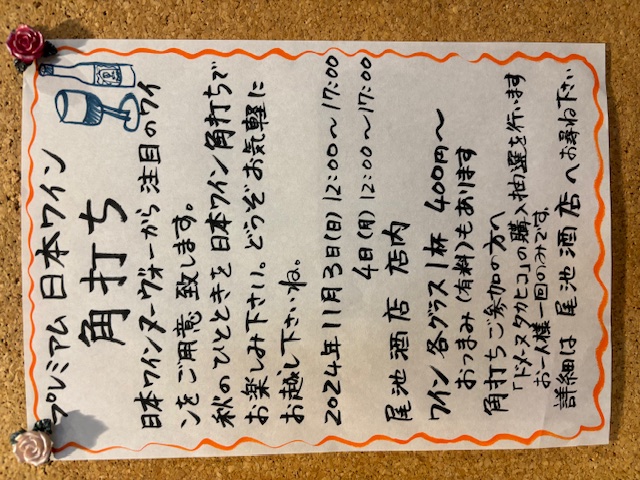 プレミアム 日本ワイン
角打ち
日本ワインヌーヴォーから 注目のワイ
ンをご用意 致します。
秋のひとときを 日本ワイン角打ちで
お楽しみ下さい。どうぞお気軽に
お越し下さいね。
2024年11月3日(日) 12:00〜17:00
4日(月) 12:00〜17:00
尾池酒店 店内
ワイン 各グラス1杯 400円〜
おつまみ(有料)もあります
角打ちご参加の方へ
「ドメーヌタカヒコ」の購入抽選を行います
お一人様一回のみです。
詳細は 尾池酒店へお尋ね下さい